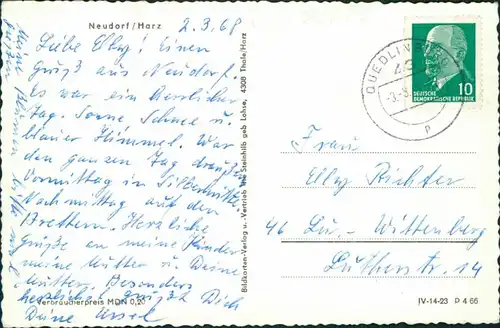 Neudorf/Harz
2.3.68
Liebe Elly! Einen
Gruß aus Neudorf.
Es war ein herrlicher
Tag. Sonne Schnee u.
blauer Himmel. War
den ganzen Tag
Vormittag in Silberhütte
Nachmittag auf den
Brettern. Herzliche
Grüße an meine Kinder
meine Mutter u. Deine
Mutter. Besonders
herzlich grüßt Dich
Deine Ursel
Verbraucherpreis MDN 0,20
Bildkarten-Verlag u. Vertrieb Ilse Steinhilb geb. Lohse, 4308 Thale/Harz
QUEDLINBURG
DEUTSCHE
DEMOKRATISCHE REPUBLIK
10
Frau
Elly Richter
46 Lu.-Wittenberg
Lutherstr. 14
IV-14-23 P 4 66